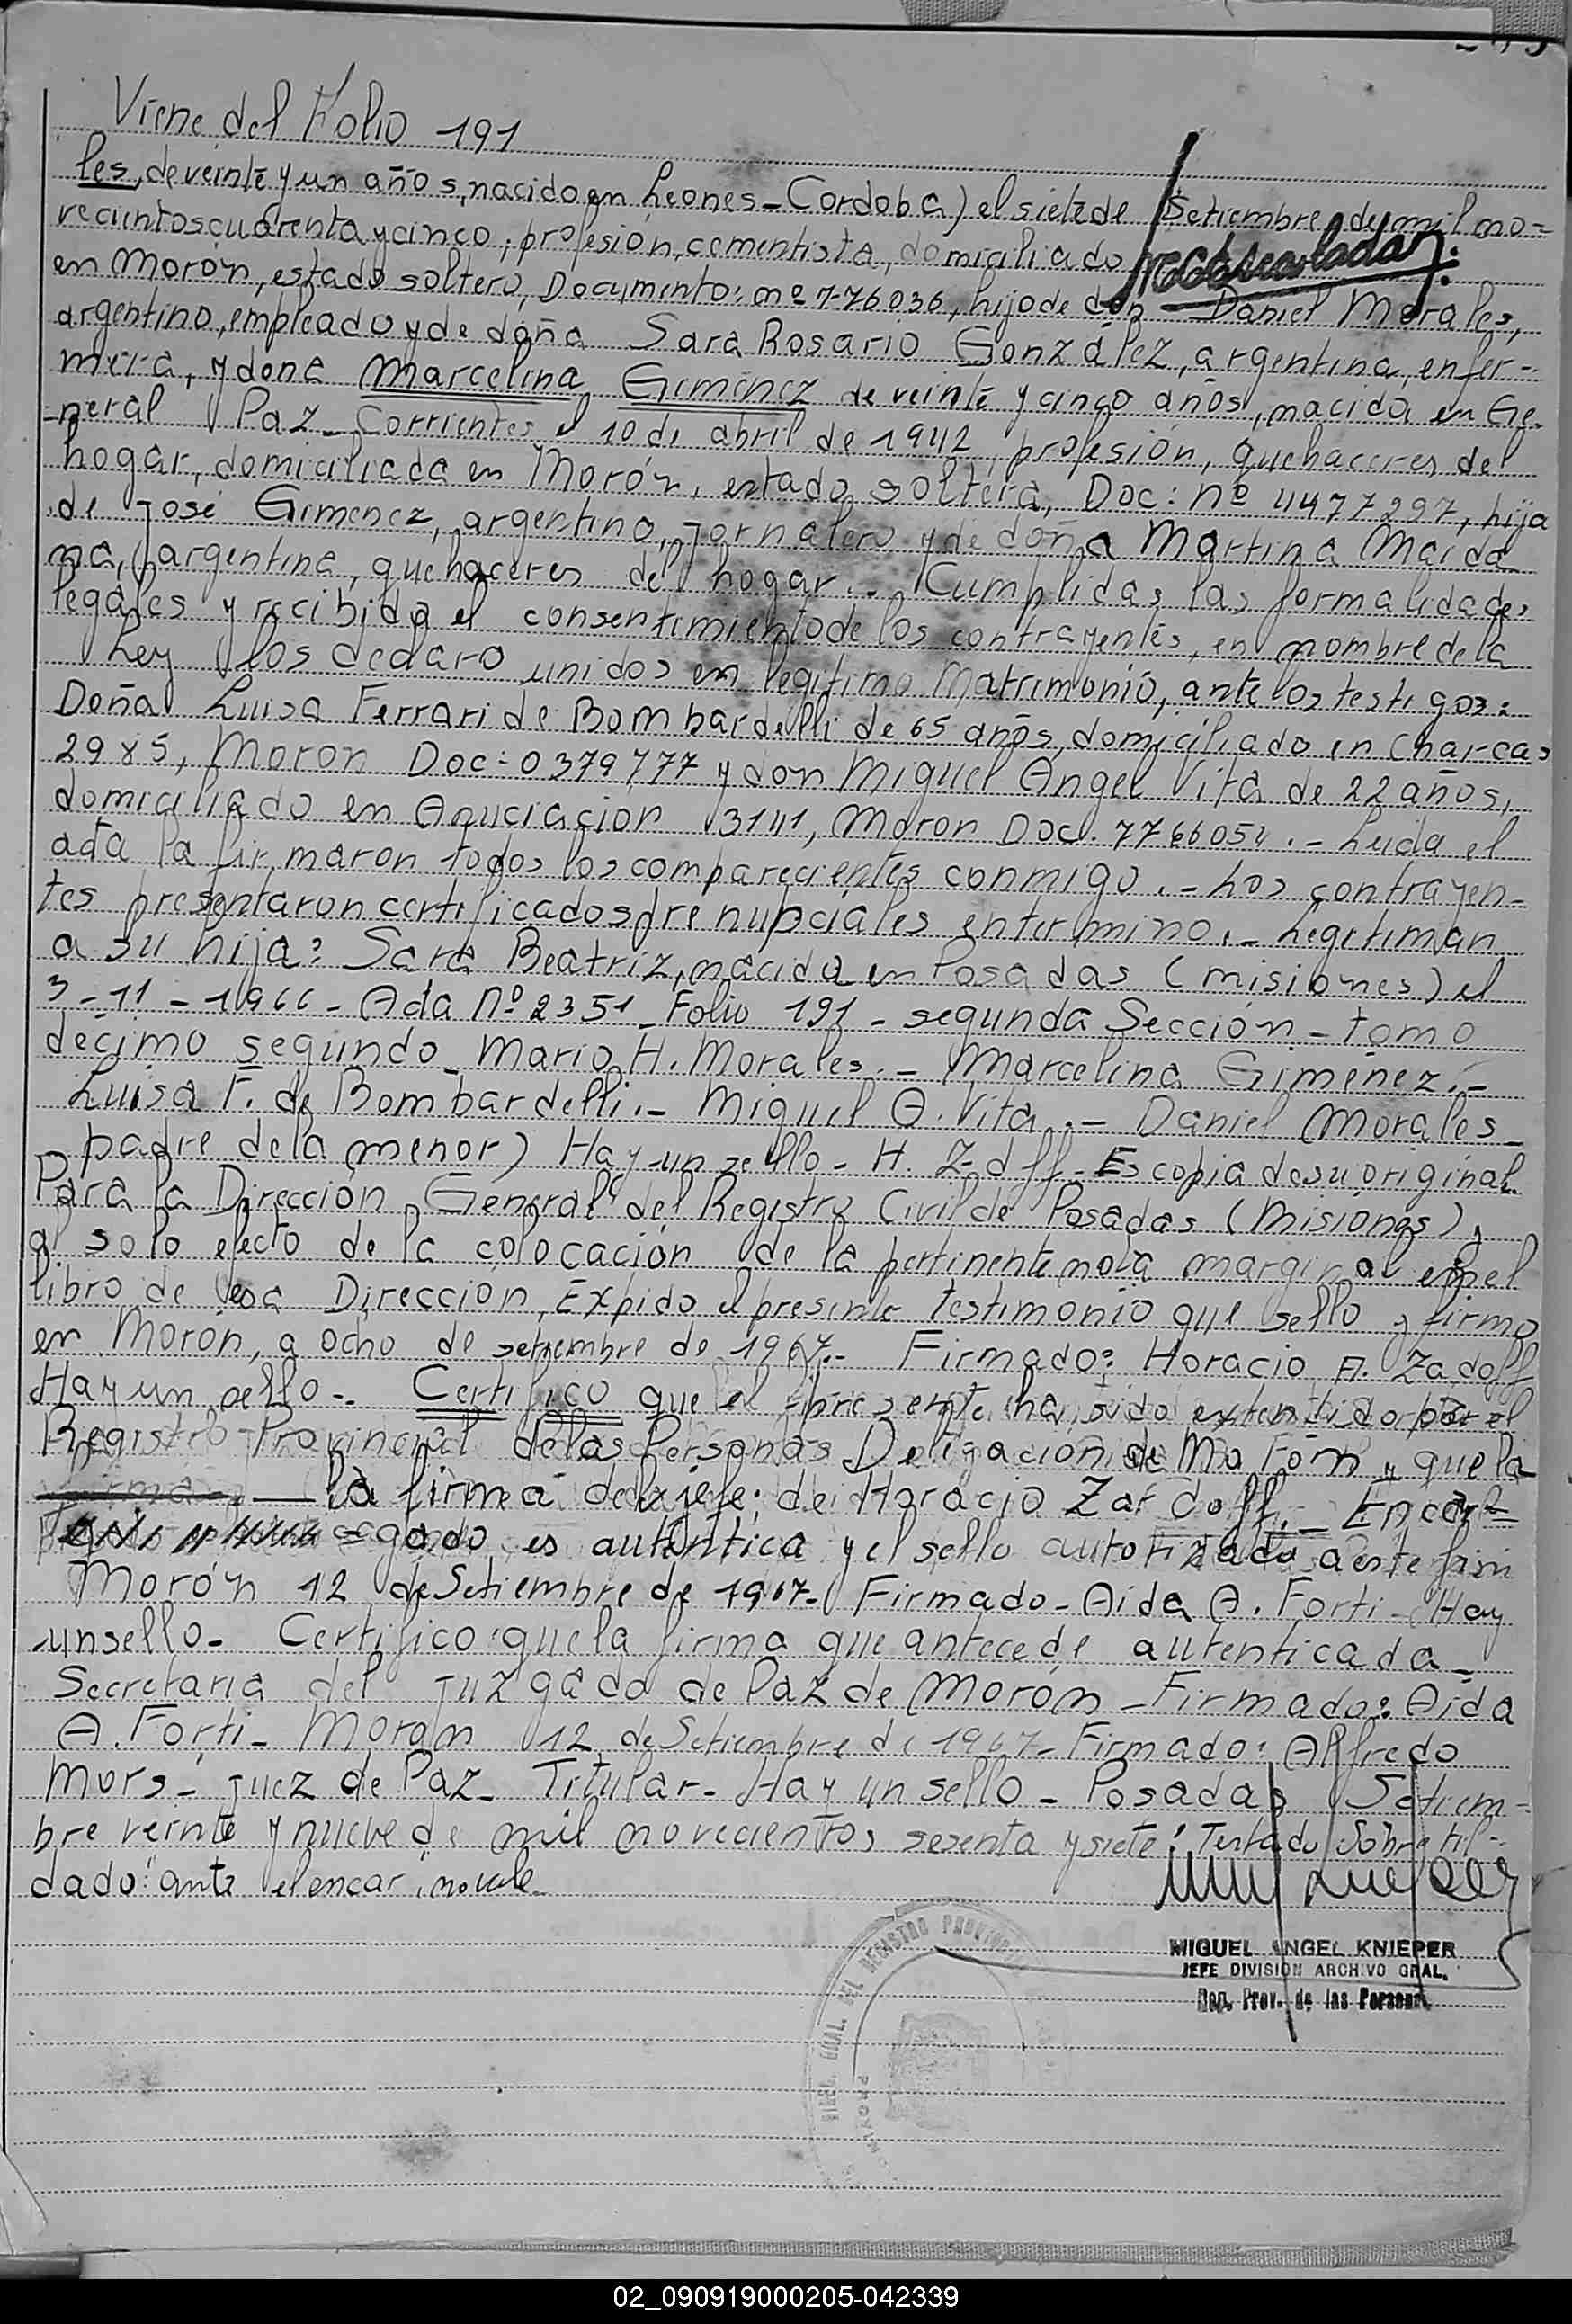 Viene del Folio 191
les, de veinte y un años, nacido en Leones - Cordoba) el siete de Setiembre de mil no=
vecientos cuarenta y cinco, profesión, cementista, domiciliado
en Morón, estado soltero, Documento: nº 7-76036, hijo de don Daniel Morales,
argentino, empleado y de doña Sara Rosario González, argentina, enfer-
mera, y dona Marcelina Gimenez de veinte y cinco años, nacida en Ge-
neral Paz - Corrientes el 10 de abril de 1942, profesión, quehaceres del
hogar, domiciliada en Morón, estado soltera, Doc: nº 4477297, hija
de José Gimenez, argentino, Jornalero y de doña Martina Maida
na, argentina, quehaceres del hogar.. Cumplidas las formalidades
legales y recibida el consentimiento de los contrayentes, en nombre de la
Ley los declaro unidos en legitimo Matrimonio, ante los testigos:
Doña Luisa Ferrari de Bombardelli de 65 años, domiciliado en Charcas
2985, Moron Doc: 0379777 y don Miguel Angel Vita de 22 años,
domiciliado en Anuciacion 3141, Moron Doc. 7766054 .- Leida el
acta la firmaron todos los comparecientes conmigo.- Los contrayen-
tes presentaron certificados prenupciales en termino.- Legitiman
a su hija: Sara Beatriz, nacida en Posadas (misiones) el
3-11-1966- Acta Nº 2351 - Folio 191 - segunda Sección - tomo
decimo segundo - Mario H. Morales.- Marcelina Giménez.-
Luisa F. de Bombardelli.- Miguel A. Vita.- Daniel Morales-
padre de la menor) Hay un sello- H. Z-dff- Es copia de su original
Para la Dirección General del Registro Civil de Posadas (Misiones) y
al solo efecto de la colocación de la pertinente nota marginal en el
libro de esa Dirección, Expido el presente testimonio que sello y firmo
en Morón, a ocho de setiembre de 1967.- Firmado: Horacio A. Zadoff
Hay un sello- Certifico que el presente ha sido extendido por el
Registro Provincial de las Personas Deligación de Moron y que la
la firma del jefe: de Horacio Zardoff.- Encar=
=gado es auténtica y el sello autorizado a este fin
Morón 12 de Setiembre de 1967- Firmado - Aida A. Forti - Hay
un sello- Certifico: que la firma que antecede autenticada-
Secretaria del Juzgado de Paz de Morón - Firmado: Aída
A. Forti- Moron 12 de Setiembre de 1967- Firmado: Alfredo
Murs- Juez de Paz- Titular- Hay un sello - Posadas Setiem-
bre veinte y nueve de mil novecientos sesenta y siete: Testado Sobre
dado: ante el encar, no vale
DIREC. GRAL. DEL REGISTRO PROVINCIAL
MIGUEL ANGEL KNIEPER
JEFE DIVISION ARCHIVO GRAL.
Reg. Prov. de las Personas
02_090919000205-042339